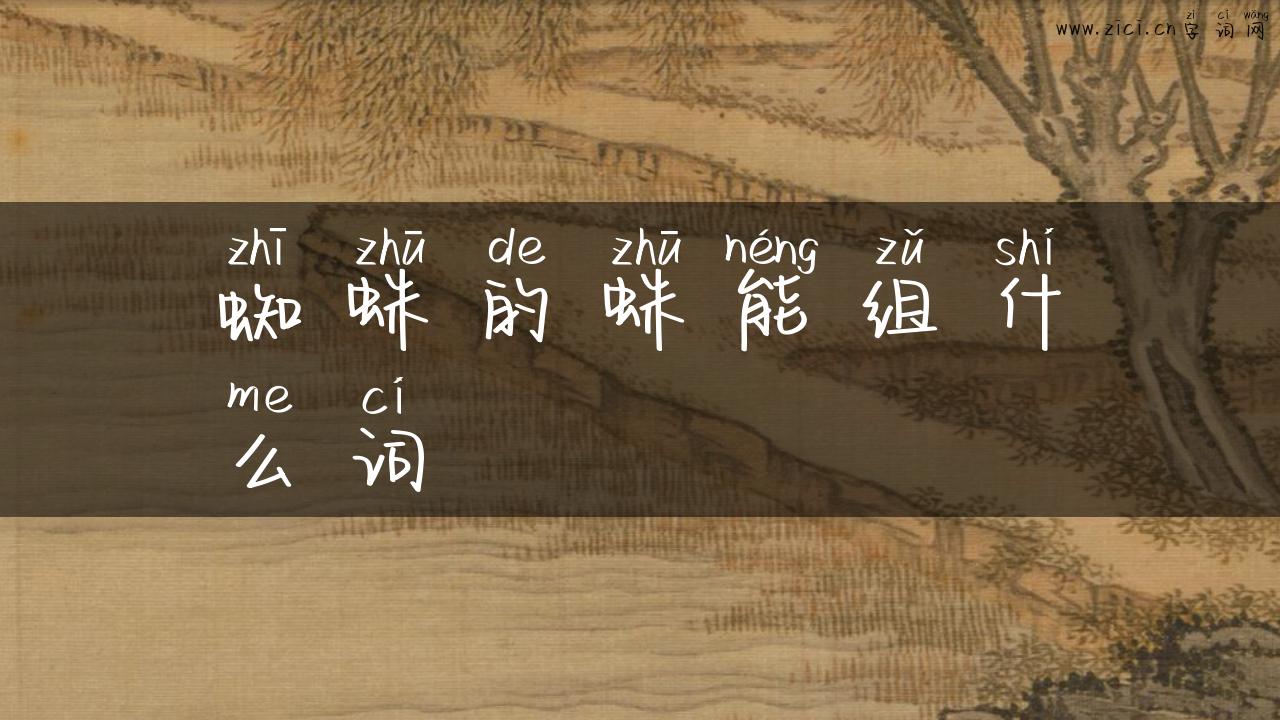 zì cí wǎng
www.zici.cn字词网
zhī zhū de zhū néng zǔ shí
蜘蛛的蛛能组什
me cí
么词